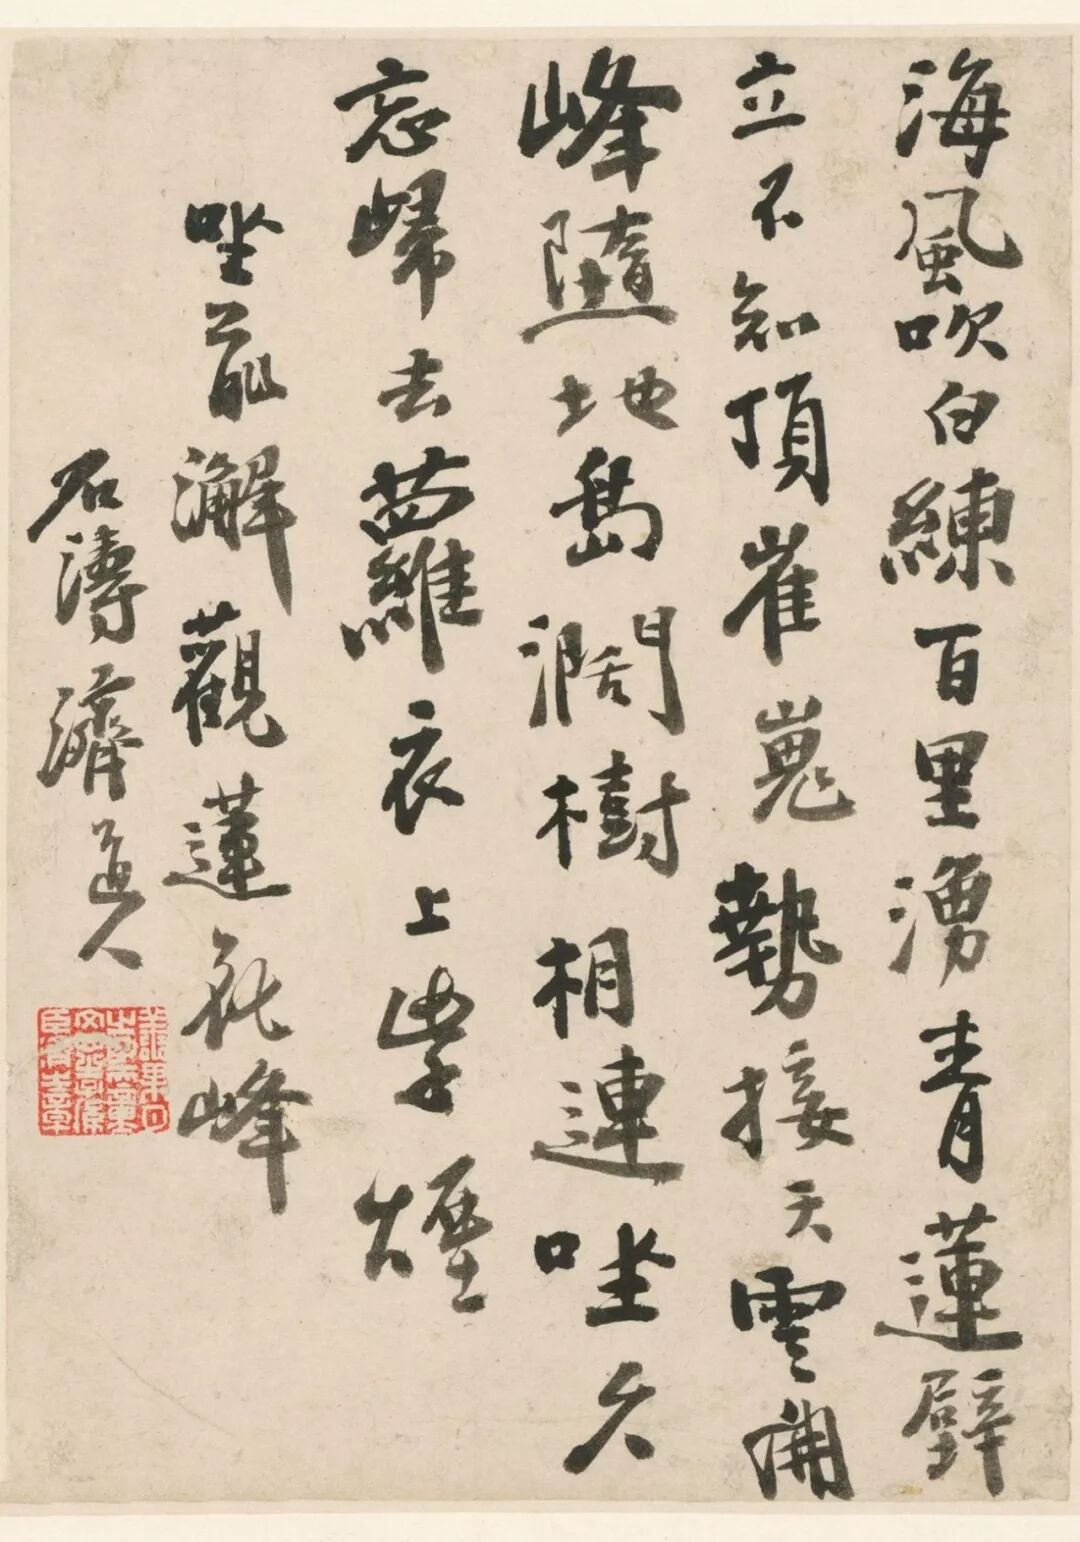 海風吹白練百里湧青蓮壁
立不知頂崔嵬勢接天雲開
峰墮地島濶樹相連坐久
忘歸去蘿衣上紫煙
坐前澥觀蓮花峰
石濤濟道人